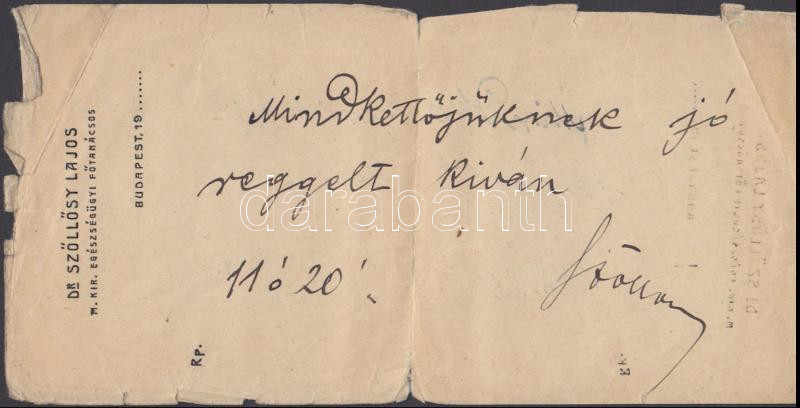 DR SZŐLLŐSY LAJOS
M. KIR. EGÉSZSÉGÜGYI FŐTANÁCSOS
BUDAPEST, 19........
Rp.
Mindkettőjüknek jó
reggelt kiván
11 ó 20'
darabanth